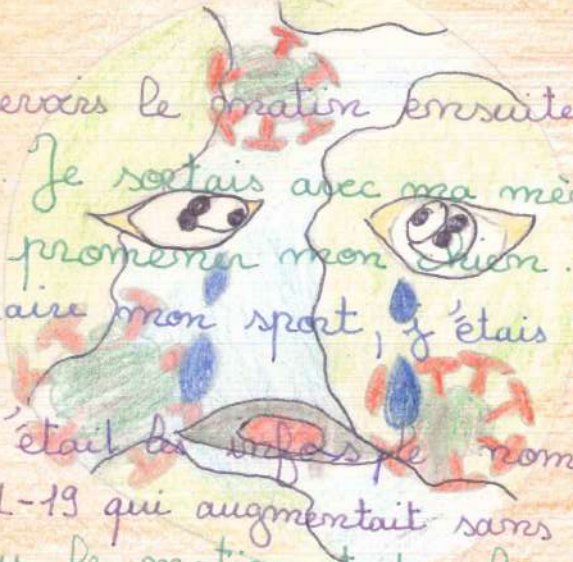 le matin ensuite
Je sortais avec ma mè
promener mon chien.
aire mon sport, j'étais
'était les infos, le nom
-19 qui augmentait sans